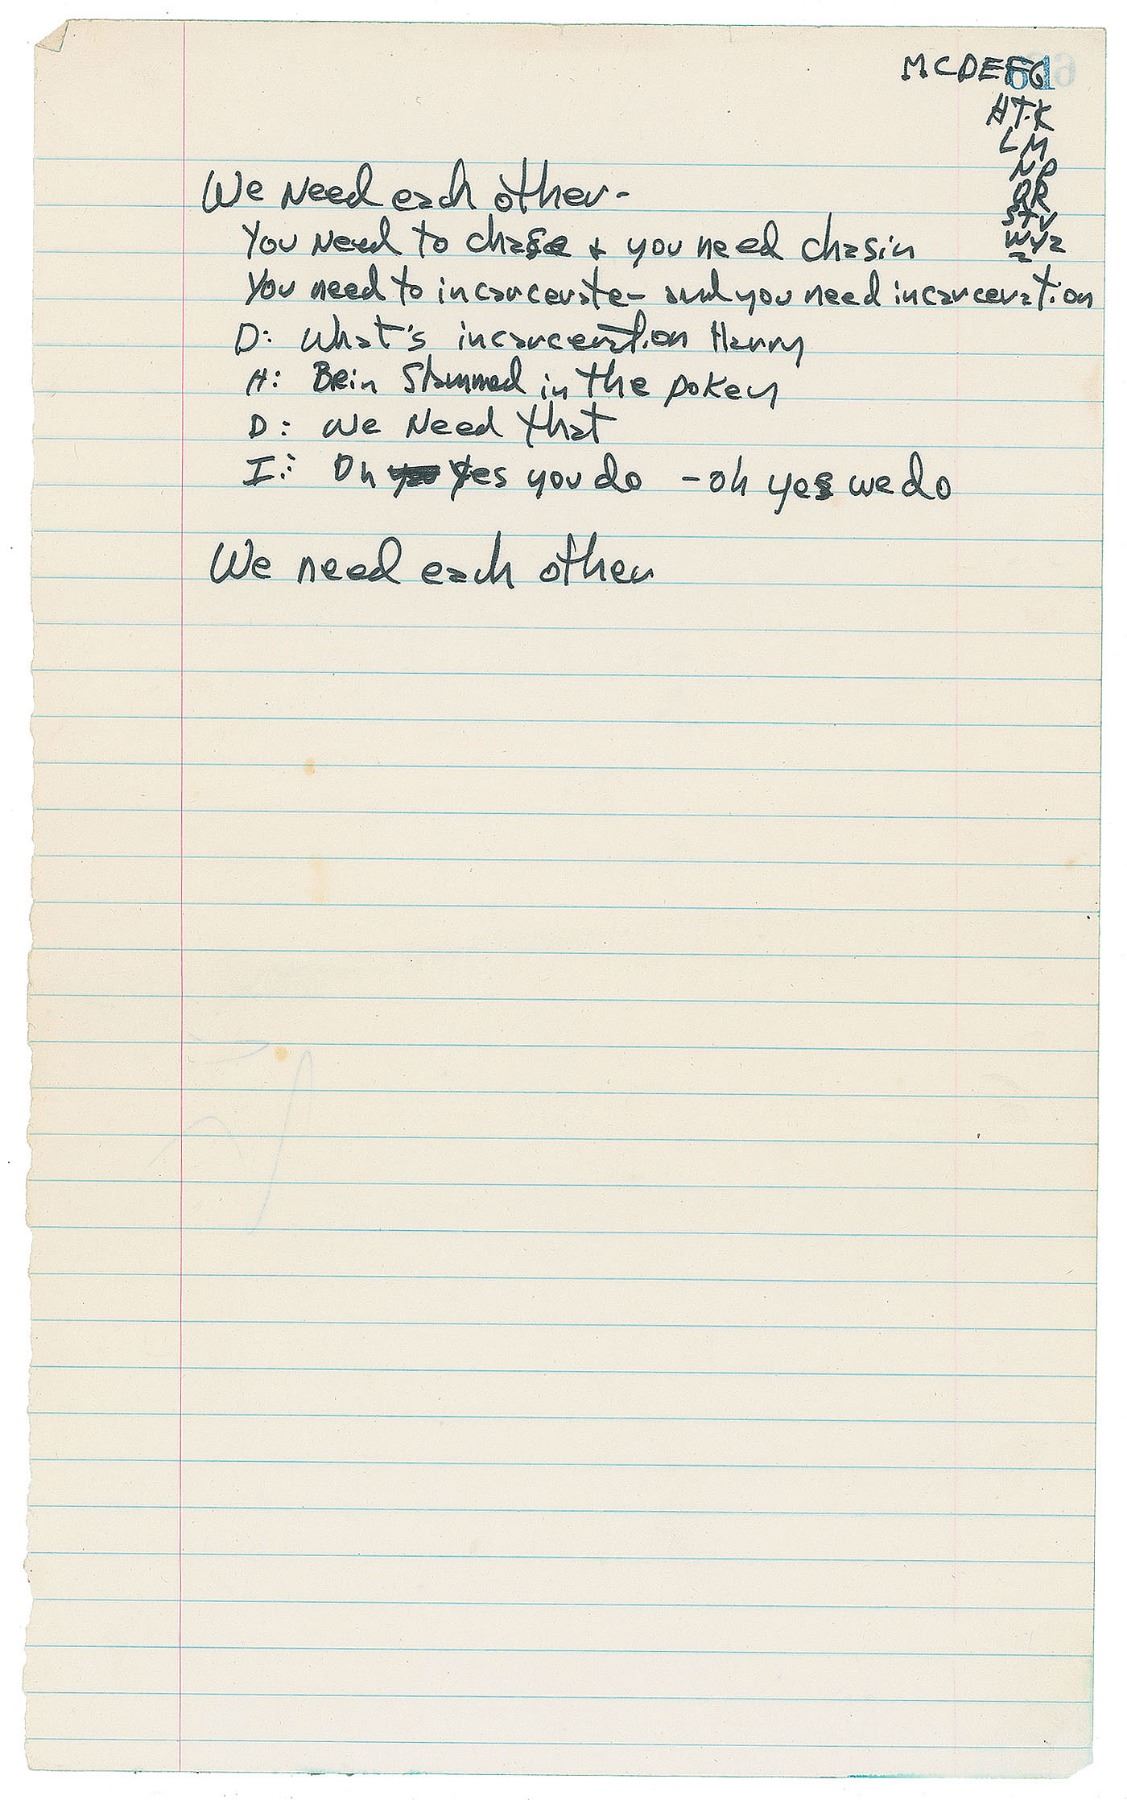 MCDEFG
HTK
LM
NP
QR
STV
WYZ
We Need each other-
You Need to chase + you need chasin
You need to incarcerate- and you need incarceration
D: What's incarceration Harry
H: Bein Slammed in the pokey
D: We Need that
I: Oh yes you do - oh yes we do
We need each other